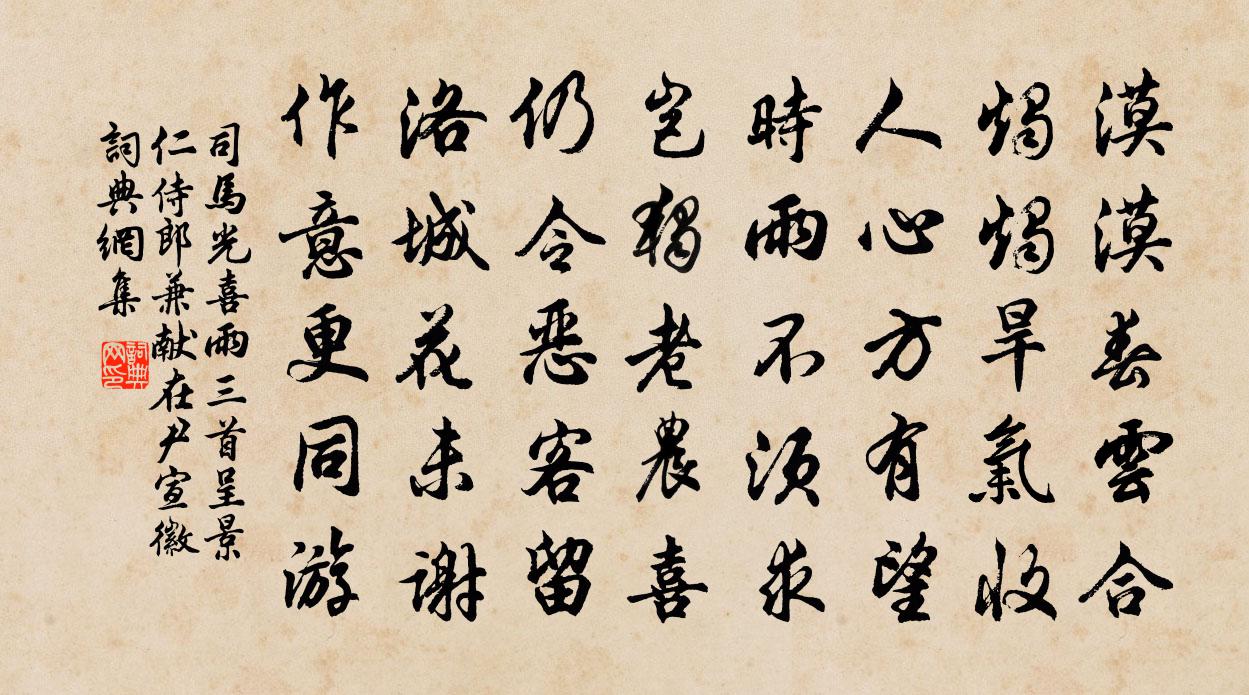 漠漠春雲合
燭燭旱氣收
人心方有望
時雨不須求
豈獨老農喜
仍令惡客留
洛城花未謝
作意更同游
司馬光喜雨三首呈景
仁侍郎兼献在尹宣徽
詞典網集
詞典
网印